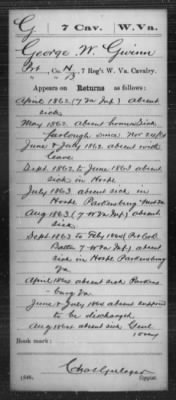 G | 7 Cav. | W. Va.
George W. Gwinn
Pvt, Co. H/B, 7 Reg't W. Va. Cavalry.
Appears on Returns as follows:
April 1862 (7 Va Inf) absent
sick.
May 1862 absent home sick
furlough since Nov
June & July 1862 absent with
leave
Sept. 1862 to June 1863 absent
sick in Hosp
July 1863 absent sick in
Hosp. Parkersburg
Aug 1863 (7 W Va Inf) absent
sick.
Sept. 1863 to Feby 1864
Battn 7 W Va Inf) absent
sick in Hosp Parkersburg
Va.
April 1864 absent sick Parkers-
burg Va.
June & July 1864 absent
to be discharged
Aug 1864 absent sick Genl
Book mark:
(546)
Copyist.